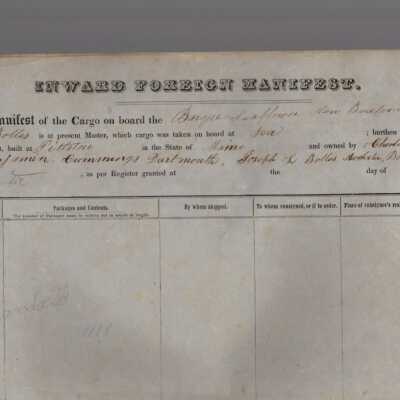 INWARD FOREIGN MANIFEST.
anifest of the Cargo on board the Barque New Bedford
Bolles is at present Master, which cargo was taken on board at Sea ; burthen
, built at Pittston in the State of Maine and owned by
Cummings Dartmouth, Joseph L Bolles
, as per Register granted at the day of
Packages and Contents.
By whom shipped.
To whom consigned, or if to order.
Place of consignee's
The number of Packages must be written out in words at length.